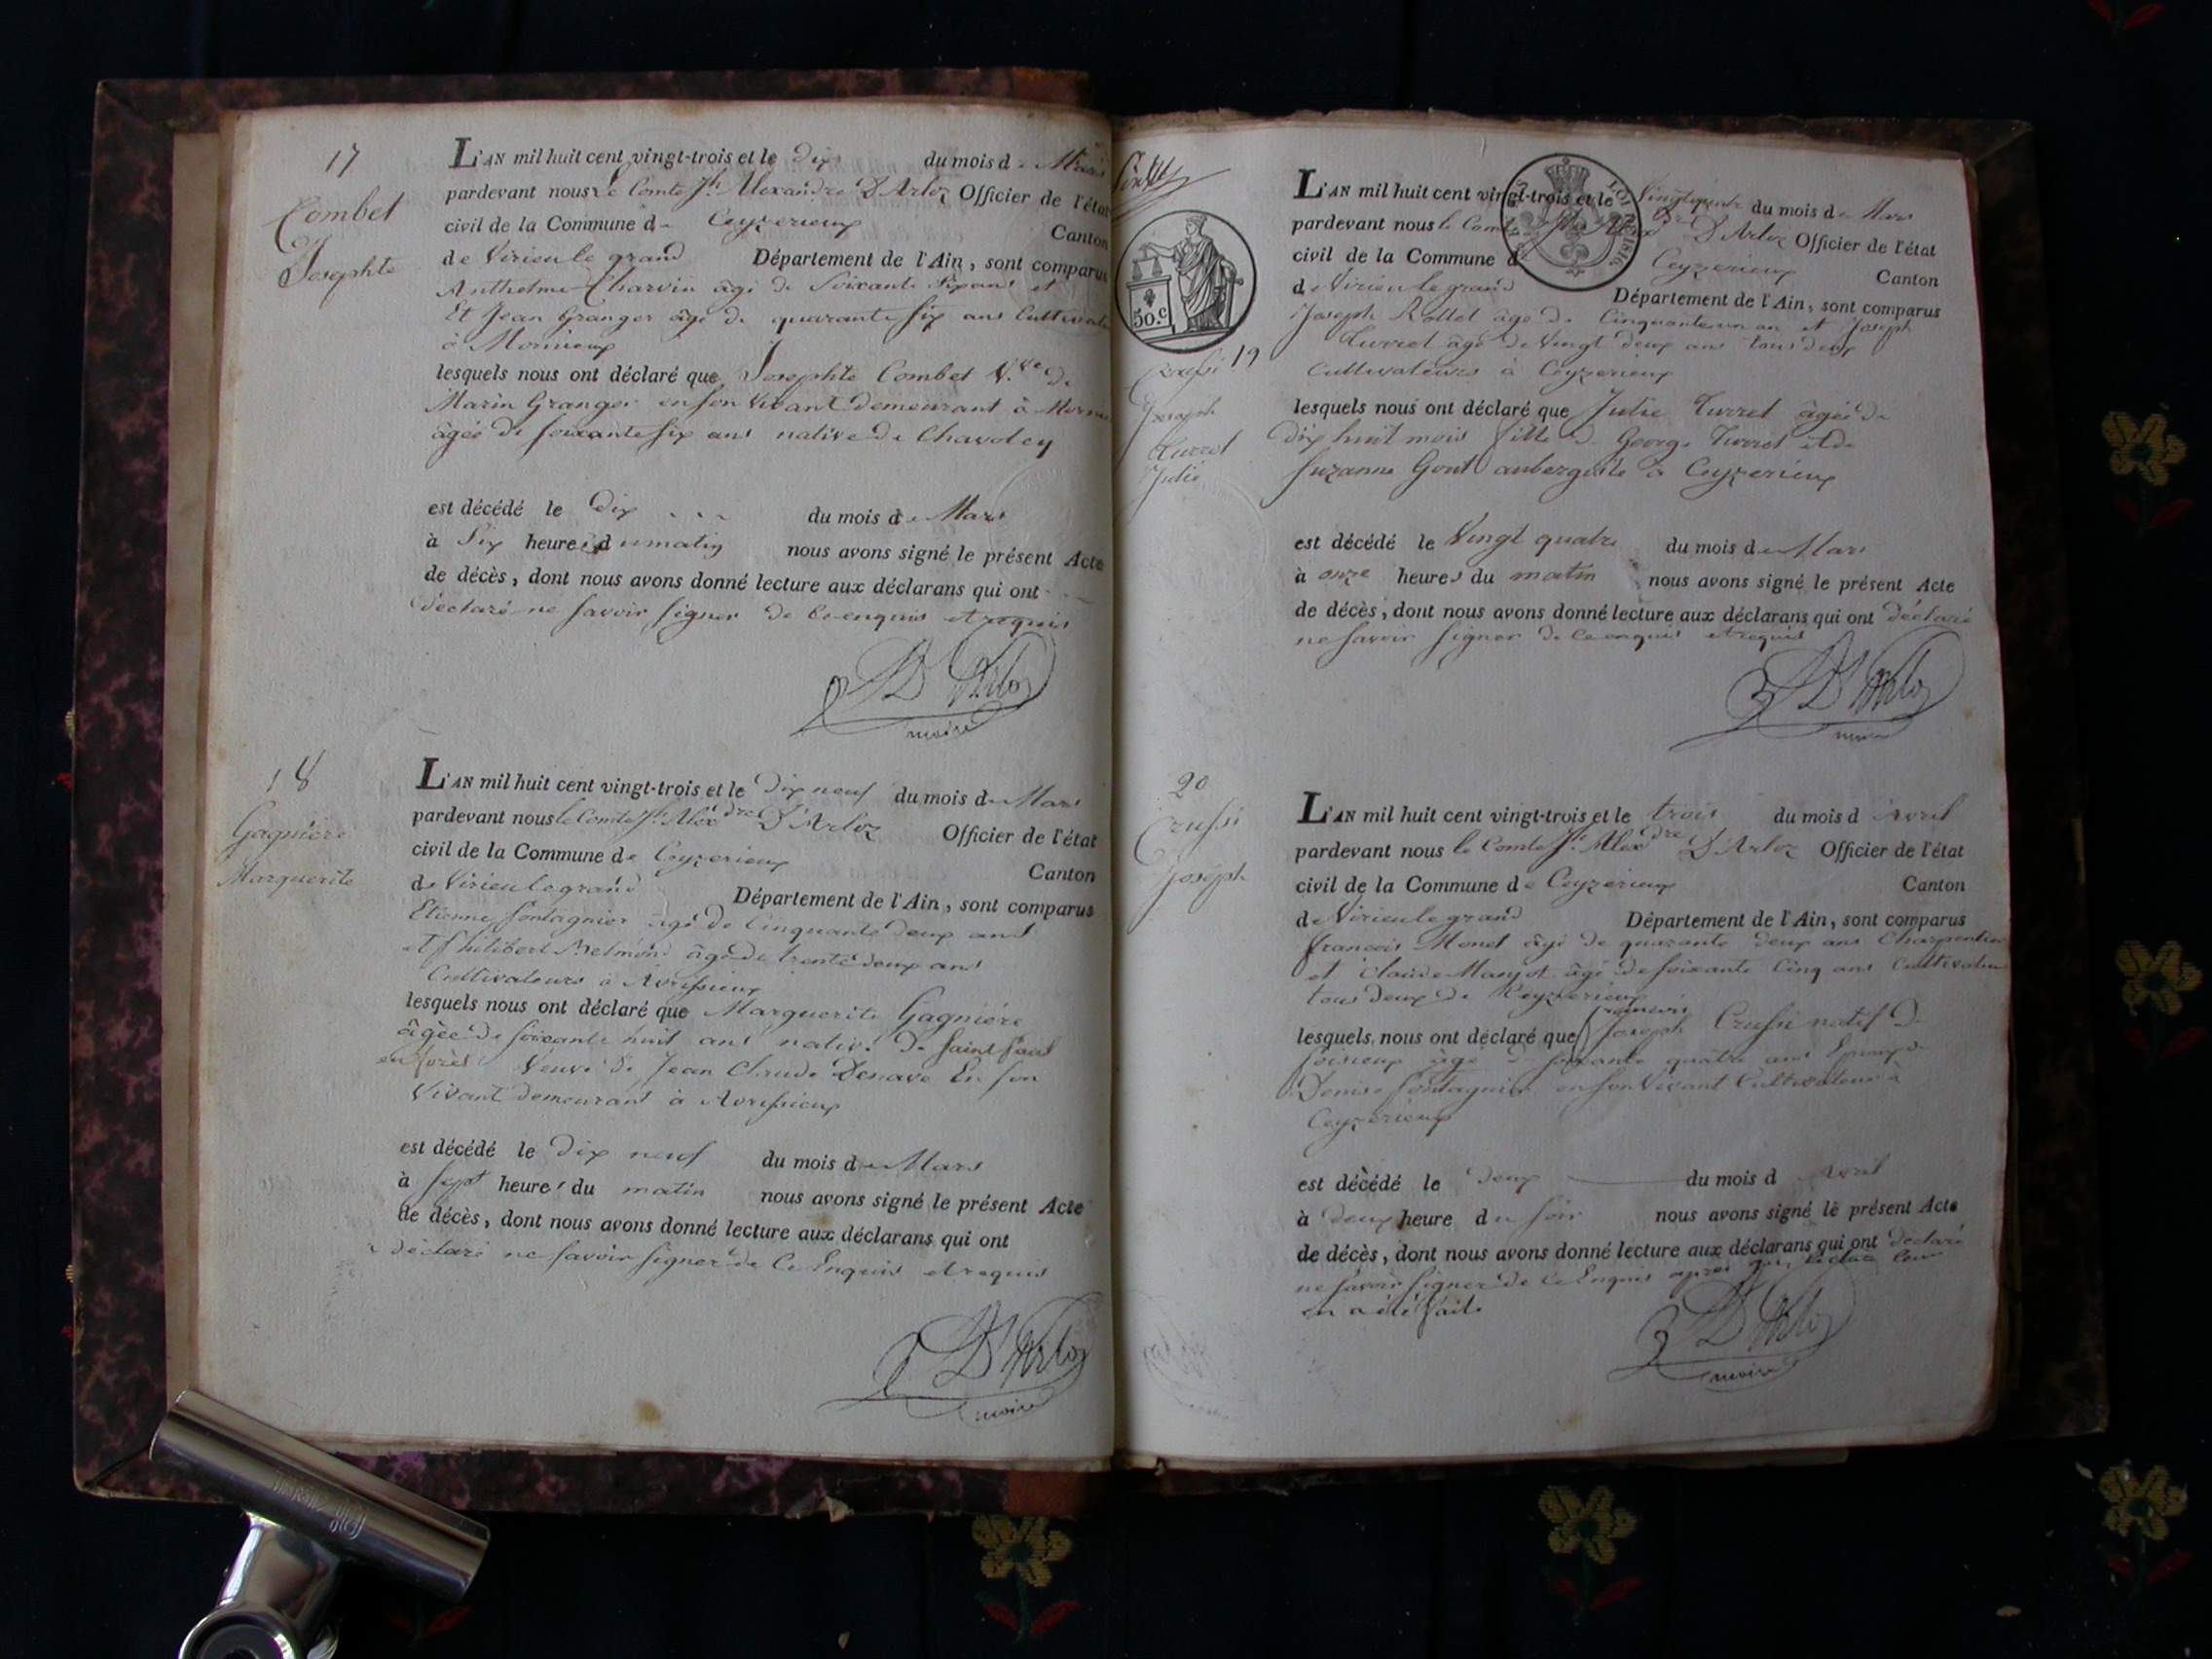 17
Combet
Josephte
L'AN mil huit cent vingt-trois et le dix du mois de Mars
pardevant nous Le Comte Jh. Alexandre D'Arloz Officier de l'état
civil de la Commune de Ceyzerieux Canton
de Virieu le grand Département de l'Ain, sont comparus
Anthelme Charvin âgé de Soixante Six ans et
Et Jean Granger âgé de quarante six ans Cultivat
à
lesquels nous ont déclaré que Josephte Combet V.ve de
Marin Granger en son vivant demeurant à
âgée de soixante six ans native de Chavoley
est décédé le dix du mois de Mars
à Six heures du matin nous avons signé le présent Acte
de décès, dont nous avons donné lecture aux déclarans qui ont
déclaré ne savoir signer de ce enquis et requis
D'Arloz
maire
18
Gagnière
Marguerite
L'AN mil huit cent vingt-trois et le dix neuf du mois de Mars
pardevant nous le Comte Jh. Alexdre D'Arloz Officier de l'état
civil de la Commune de Ceyzerieux Canton
de Virieu le grand Département de l'Ain, sont comparus
Etienne Fontagnier âgé de Cinquante deux ans
et Philibert Belmond âgé de trente deux ans
Cultivateurs à Avrissieux
lesquels nous ont déclaré que Marguerite Gagnière
âgée de soixante huit ans native de Saint Paul
en forèt Veuve de Jean Claude Denave En son
Vivant demeurant à Avrissieux
est décédé le dix neuf du mois de Mars
à sept heures du matin nous avons signé le présent Acte
de décès, dont nous avons donné lecture aux déclarans qui ont
déclaré ne savoir signer de Ce Enquis et requis
D'Arloz
maire
50.c
LOI DE 1816
19
Crussi
Joseph
Turrel
Julie
L'AN mil huit cent vingt-trois et le Vingt quatre du mois de Mars
pardevant nous le Comte D'Arloz Officier de l'état
civil de la Commune d Ceyzerieux Canton
de Virieu le grand Département de l'Ain, sont comparus
Joseph Rollet âgé de Cinquante un an et Joseph
Turrel âgé de Vingt deux ans tous deux
Cultivateurs à Ceyzerieux
lesquels nous ont déclaré que Julie Turrel âgée de
dix huit mois fille de George Turrel et de
Suzanne Gout aubergiste à Ceyzerieux
est décédé le Vingt quatre du mois de Mars
à onze heures du matin nous avons signé le présent Acte
de décès, dont nous avons donné lecture aux déclarans qui ont déclaré
ne savoir signer de ce enquis et requis
D'Arloz
maire
20
Crussi
Joseph
L'AN mil huit cent vingt-trois et le trois du mois d Avril
pardevant nous le Comte Jh. Alexdre D'Arloz Officier de l'état
civil de la Commune de Ceyzerieux Canton
de Virieu le grand Département de l'Ain, sont comparus
francois Monet âgé de quarante deux ans Charpentier
et Claude Manjot âgé de soixante Cinq ans Cultivateur
tous deux de Ceyzerieux
francois
lesquels nous ont déclaré que Joseph Crussi natif de
âgé de soixante quatre ans Epoux de
Denise Fontagnier en son Vivant Cultivateur à
Ceyzerieux
est décédé le deux du mois d Avril
à deux heure du soir nous avons signé le présent Acte
de décès, dont nous avons donné lecture aux déclarans qui ont déclaré
ne savoir signer de Ce Enquis après que lecture leur
en a été faite
D'Arloz
maire